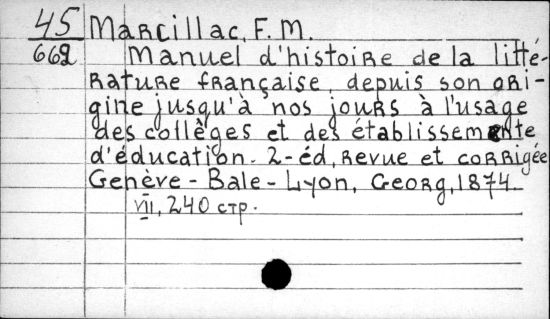 45 Marcillac, F. M.
662 Manuel d'histoire de la litté-
rature française, depuis son ori-
gine jusqu'à nos jours à l'usage
des collèges et des établissemente
d'éducation. 2-éd, revue et corrigée
Genève - Bale - Lyon, Georg, 1874.
VII, 240 стр.